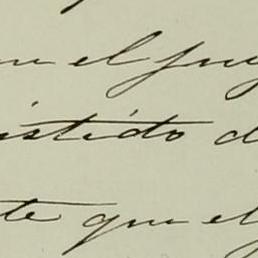 en el juz
istido d
te que el